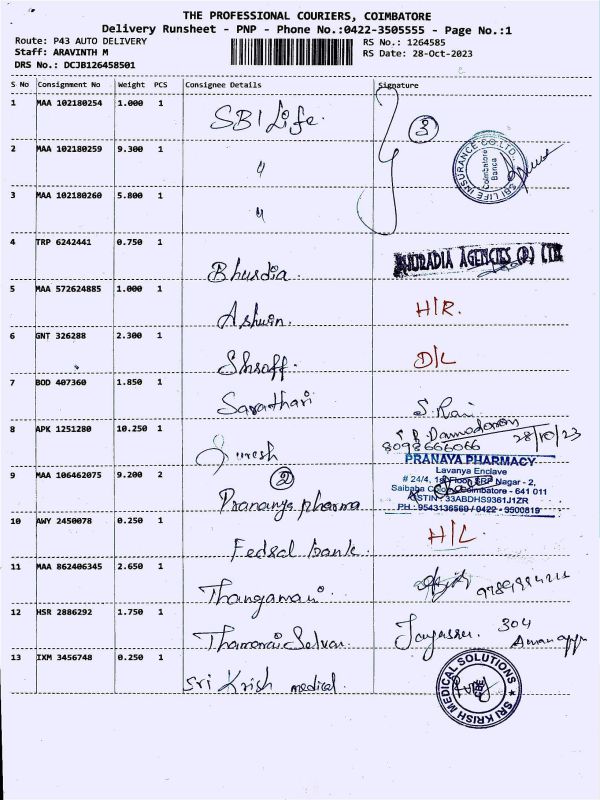 THE PROFESSIONAL COURIERS, COIMBATORE
Delivery Runsheet - PNP - Phone No.:0422-3505555 - Page No.:1
Route: P43 AUTO DELIVERY
RS No.: 1264585
Staff: ARAVINTH M
RS Date: 28-Oct-2023
DRS No.: DCJB126458501
S No Consignment No Weight PCS Consignee Details Signature
1 MAA 102180254 1.000 1 SBI Life. 3
2 MAA 102180259 9.300 1 "
SBI LIFE INSURANCE CO. LTD.,
Coimbatore
Banca
3 MAA 102180260 5.800 1 "
4 TRP 6242441 0.750 1 Bhuradia. BHURADIA AGENCIES (P) LTD
5 MAA 572624885 1.000 1 Ashwin. H/R.
6 GNT 326288 2.300 1 Shroff. D/L
7 BOD 407360 1.850 1 Sarathari S. Rani
8 APK 1251280 10.250 1 Suresh Damodaran
8098666066 28/10/23
9 MAA 106462075 9.200 2 2 Prananya pharma
PRANAVA PHARMACY
Lavanya Enclave
# 24/4, 1st Floor, SRP Nagar - 2,
Saibaba Colony, Coimbatore - 641 011
GSTIN : 33ABDHS9361J1ZR
PH : 9543136569 / 0422 - 3500819
10 AWY 2450078 0.250 1 Fedral bank. H/L
11 MAA 862406345 2.650 1 Thangamani
12 HSR 2886292 1.750 1 Thamarai Selvan 304
13 IXM 3456748 0.250 1 Sri Krish medical.
SRI KRISH MEDICAL SOLUTIONS
CBE